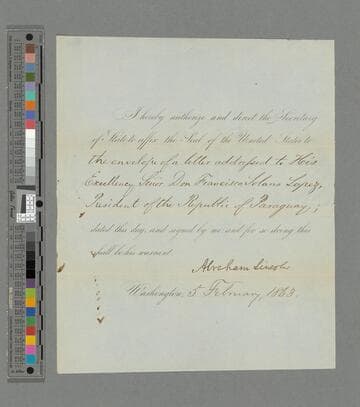 I hereby authorize and direct the Secretary
of State to affix the Seal of the United States to
the envelope of a letter addressed to His
Excellency Señor Don Francisco Solano Lopez,
President of the Republic of Paraguay;
dated this day, and signed by me and for so doing this
shall be his warrant.
Abraham Lincoln
Washington, 5 February, 1863.